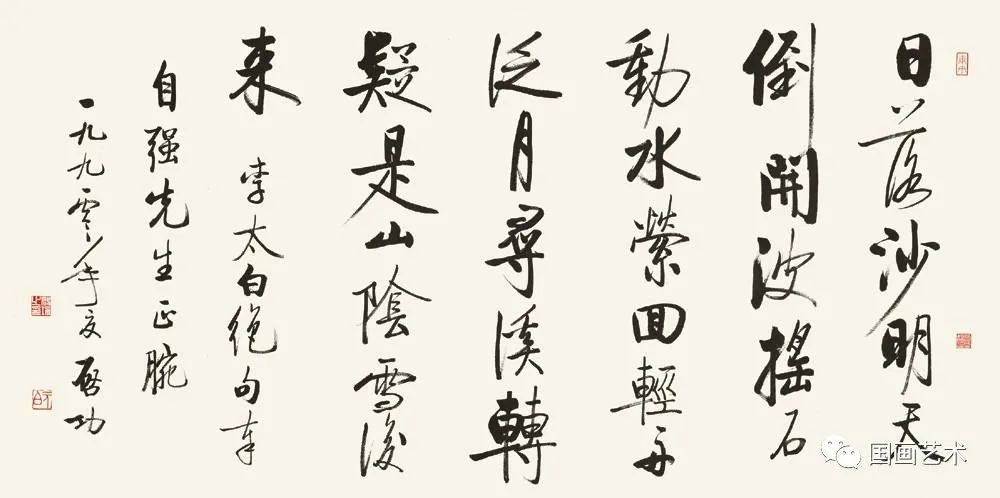 日落沙明天
倒開波搖石
動水縈回輕舟
泛月尋溪轉
疑是山陰雪後
来
李太白絶句奉
自强先生正腕
一九九零年夏啓功
国画艺术